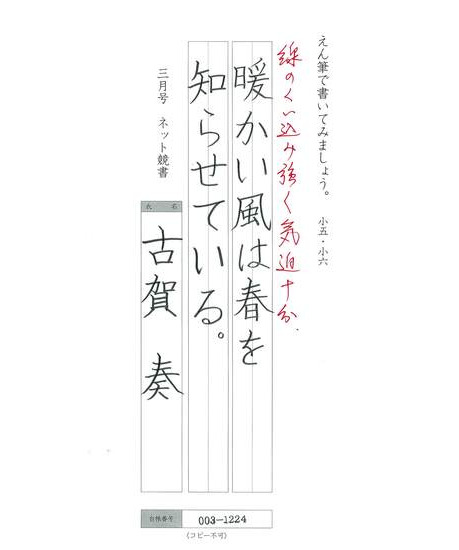 えん筆で書いてみましょう。 小五・小六
線のくい込み強く気迫十分、
暖かい風は春を
知らせている。
三月号 ネット競書
氏 名
古賀 奏
台帳番号 003-1224
(コピー不可)